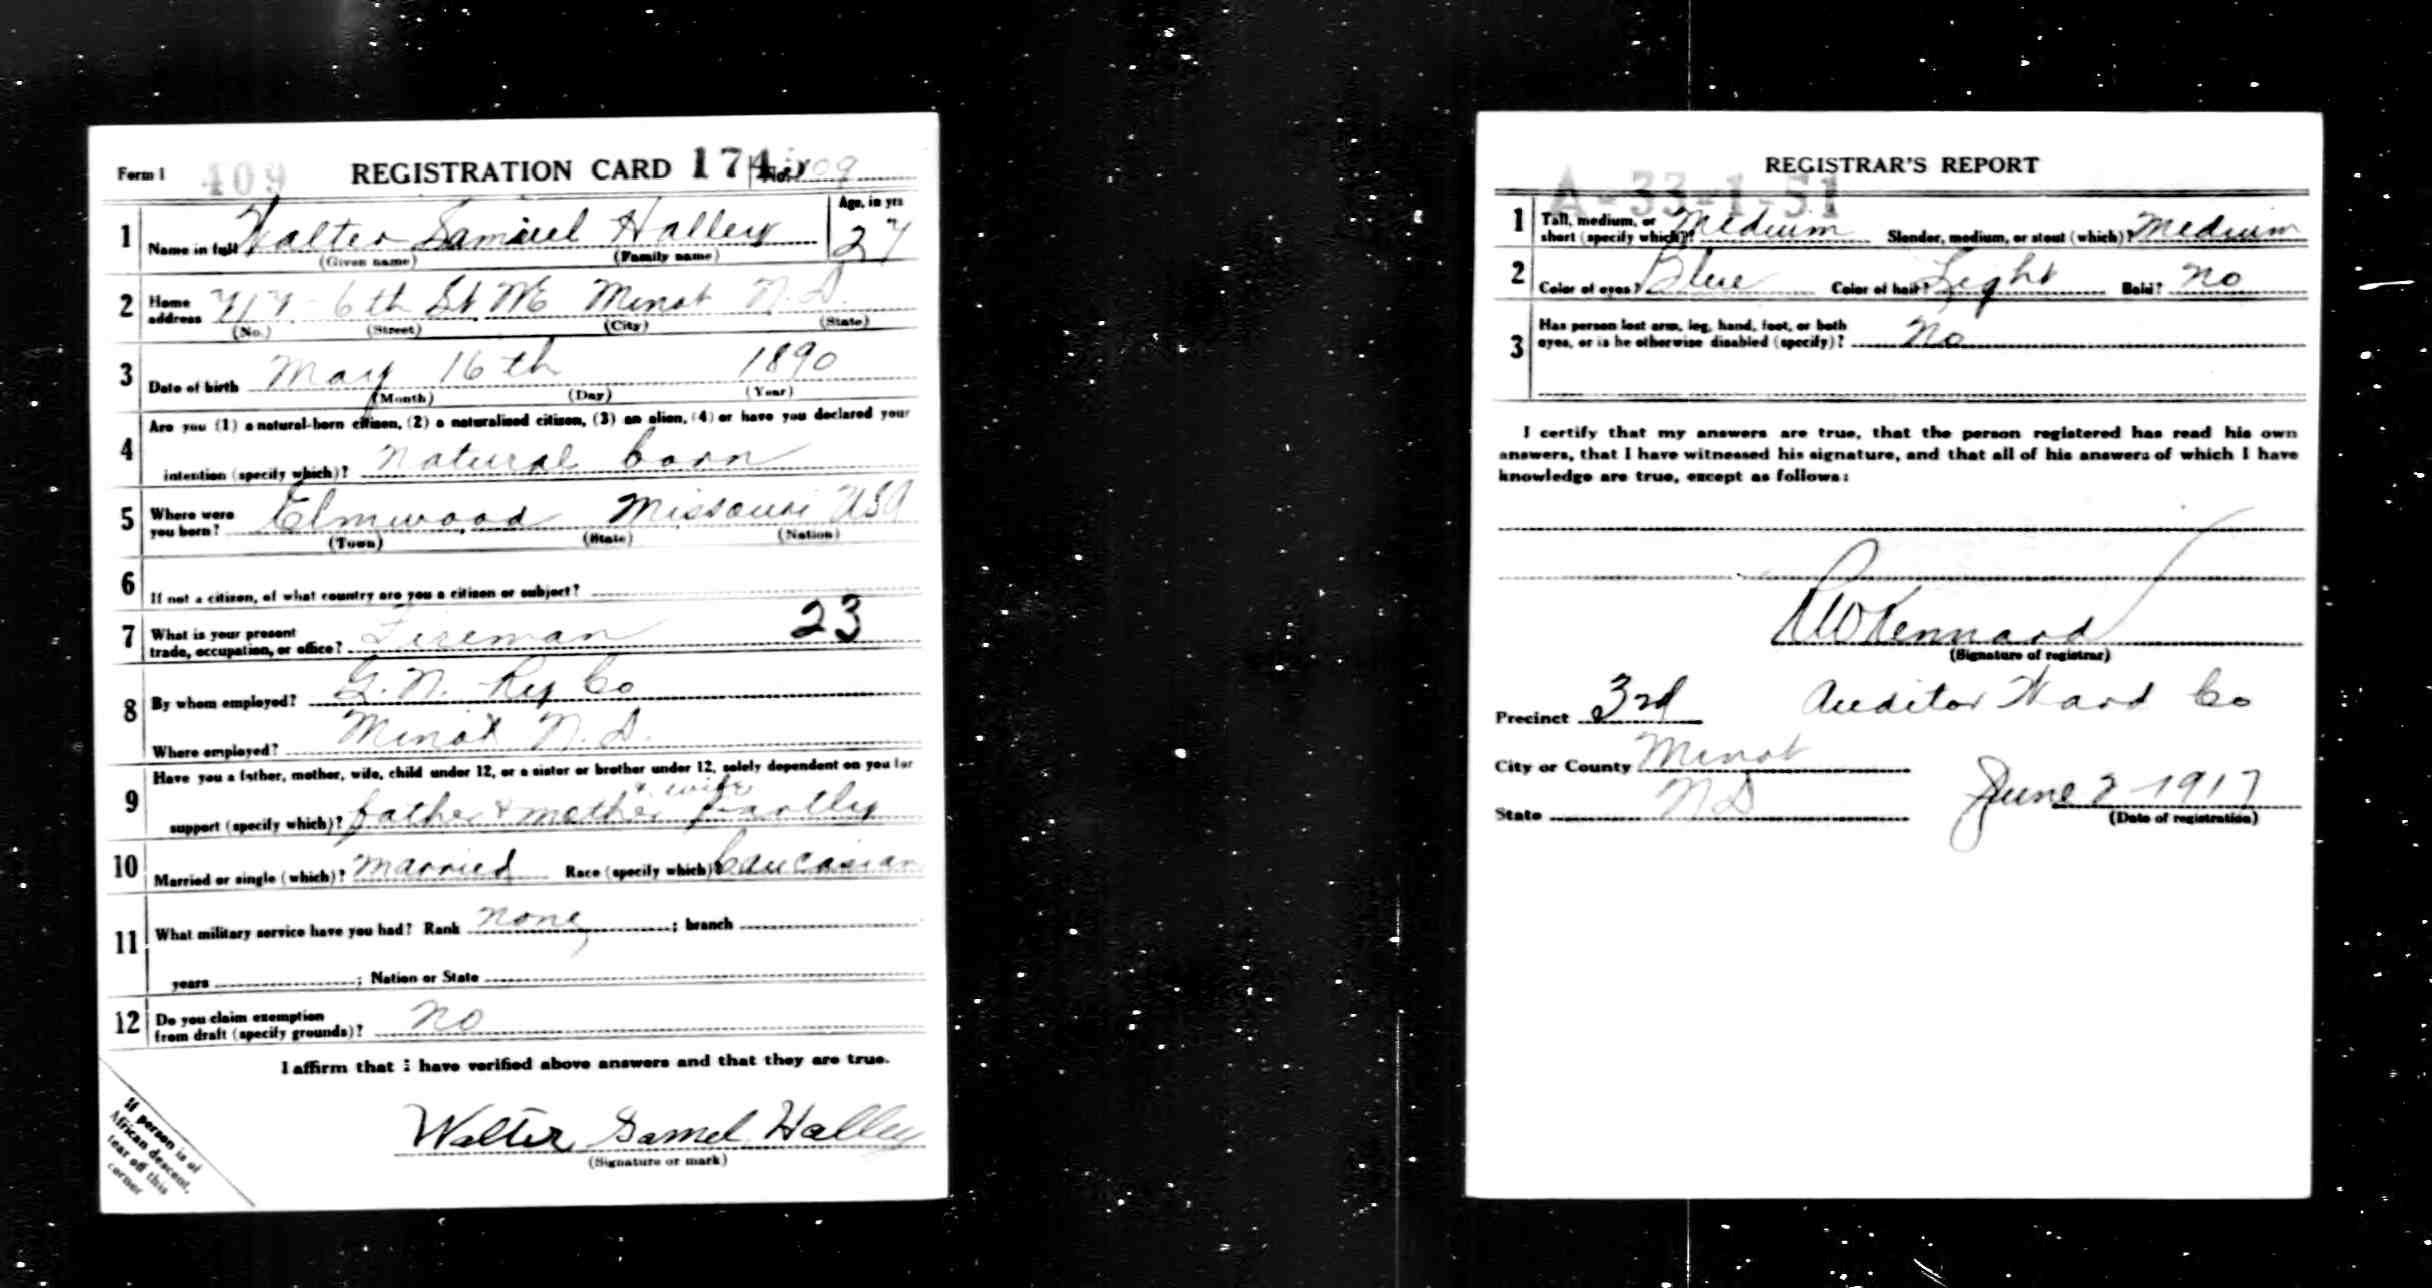 Form 1 409 REGISTRATION CARD 174 No. 109
1 Name in full Walter Samuel Halley Age, in yrs 27
(Given name) (Family name)
2 Home address 717 6th St NE Minot N.D.
(No.) (Street) (City) (State)
3 Date of birth May 16th 1890
(Month) (Day) (Year)
4 Are you (1) a natural-born citizen, (2) a naturalized citizen, (3) an alien, (4) or have you declared your
intention (specify which)? Natural born
5 Where were you born? Elmwood Missouri USA
(Town) (State) (Nation)
6 If not a citizen, of what country are you a citizen or subject?
7 What is your present trade, occupation, or office? Fireman 23
8 By whom employed? G. N. Ry Co
Where employed? Minot N. D.
9 Have you a father, mother, wife, child under 12, or a sister or brother under 12, solely dependent on you for
& wife
support (specify which)? father & mother partly
10 Married or single (which)? Married Race (specify which)? Caucasian
11 What military service have you had? Rank none ; branch
years ; Nation or State
12 Do you claim exemption from draft (specify grounds)? No
I affirm that I have verified above answers and that they are true.
Walter Samel Halley
(Signature or mark)
If person is of
African descent,
tear off this
corner
REGISTRAR'S REPORT
A-33-1-51
1 Tall, medium, or short (specify which)? Medium Slender, medium, or stout (which)? Medium
2 Color of eyes? Blue Color of hair? Light Bald? No
3 Has person lost arm, leg, hand, foot, or both
eyes, or is he otherwise disabled (specify)? No
I certify that my answers are true, that the person registered has read his own
answers, that I have witnessed his signature, and that all of his answers of which I have
knowledge are true, except as follows:
R W Kennard
(Signature of registrar)
Precinct 3rd Auditor Ward Co
City or County Minot
State N D June 2 1917
(Date of registration)